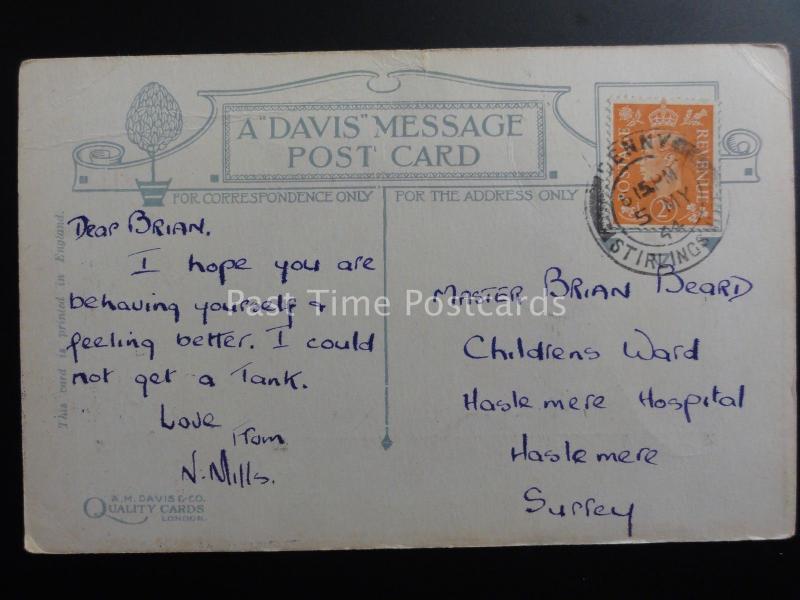 A "DAVIS" MESSAGE
POST CARD
FOR CORRESPONDENCE ONLY
FOR THE ADDRESS ONLY
This card is printed in England.
Dear BRIAN.
I hope you are
behaving yourself &
feeling better. I could
not get a Tank.
Love
From
N. Mills.
A.M. DAVIS & CO.
QUALITY CARDS
LONDON.
POSTAGE
REVENUE
2D
8 15 PM
5 MY
44
STIRLINGS
MASTER BRIAN BEARD
Childrens Ward
Haslemere Hospital
Haslemere
Surrey
Past Time Postcards